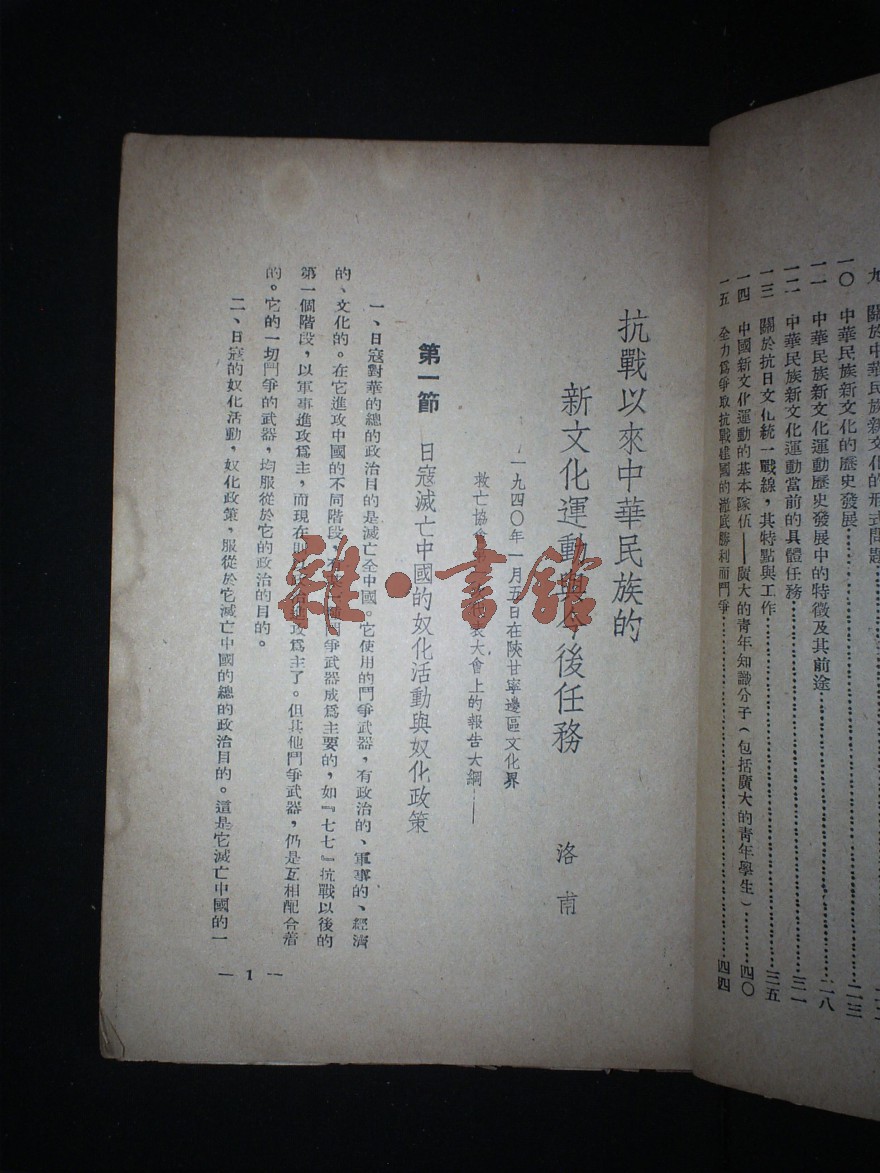 九 關於中華民族新文化的形式問題
一〇 中華民族新文化的歷史發展……二三
一一 中華民族新文化運動歷史發展中的特徵及其前途……二八
一二 中華民族新文化運動當前的具體任務……三一
一三 關於抗日文化統一戰線，其特點與工作……三五
一四 中國新文化運動的基本隊伍——廣大的青年知識分子（包括廣大的青年學生）……四〇
一五 全力爲爭取抗戰建國的澈底勝利而鬥爭……四四
抗戰以來中華民族的
新文化運動與今後任務
洛甫
一九四〇年一月五日在陝甘寧邊區文化界
救亡協會 表大會上的報告大綱——
第一節 日寇滅亡中國的奴化活動與奴化政策
一、日寇對華的總的政治目的是滅亡全中國。它使用的鬥爭武器，有政治的、軍事的、經濟
的、文化的。在它進攻中國的不同階段、有 一種鬥爭武器成爲主要的，如『七七』抗戰以後的
第一個階段，以軍事進攻爲主，而現在則以政治進攻爲主了。但其他鬥爭武器，仍是互相配合着
的。它的一切鬥爭的武器，均服從於它的政治的目的。
二、日寇的奴化活動，奴化政策，服從於它滅亡中國的總的政治目的。這是它滅亡中國的一
— 1 —
雜·書館